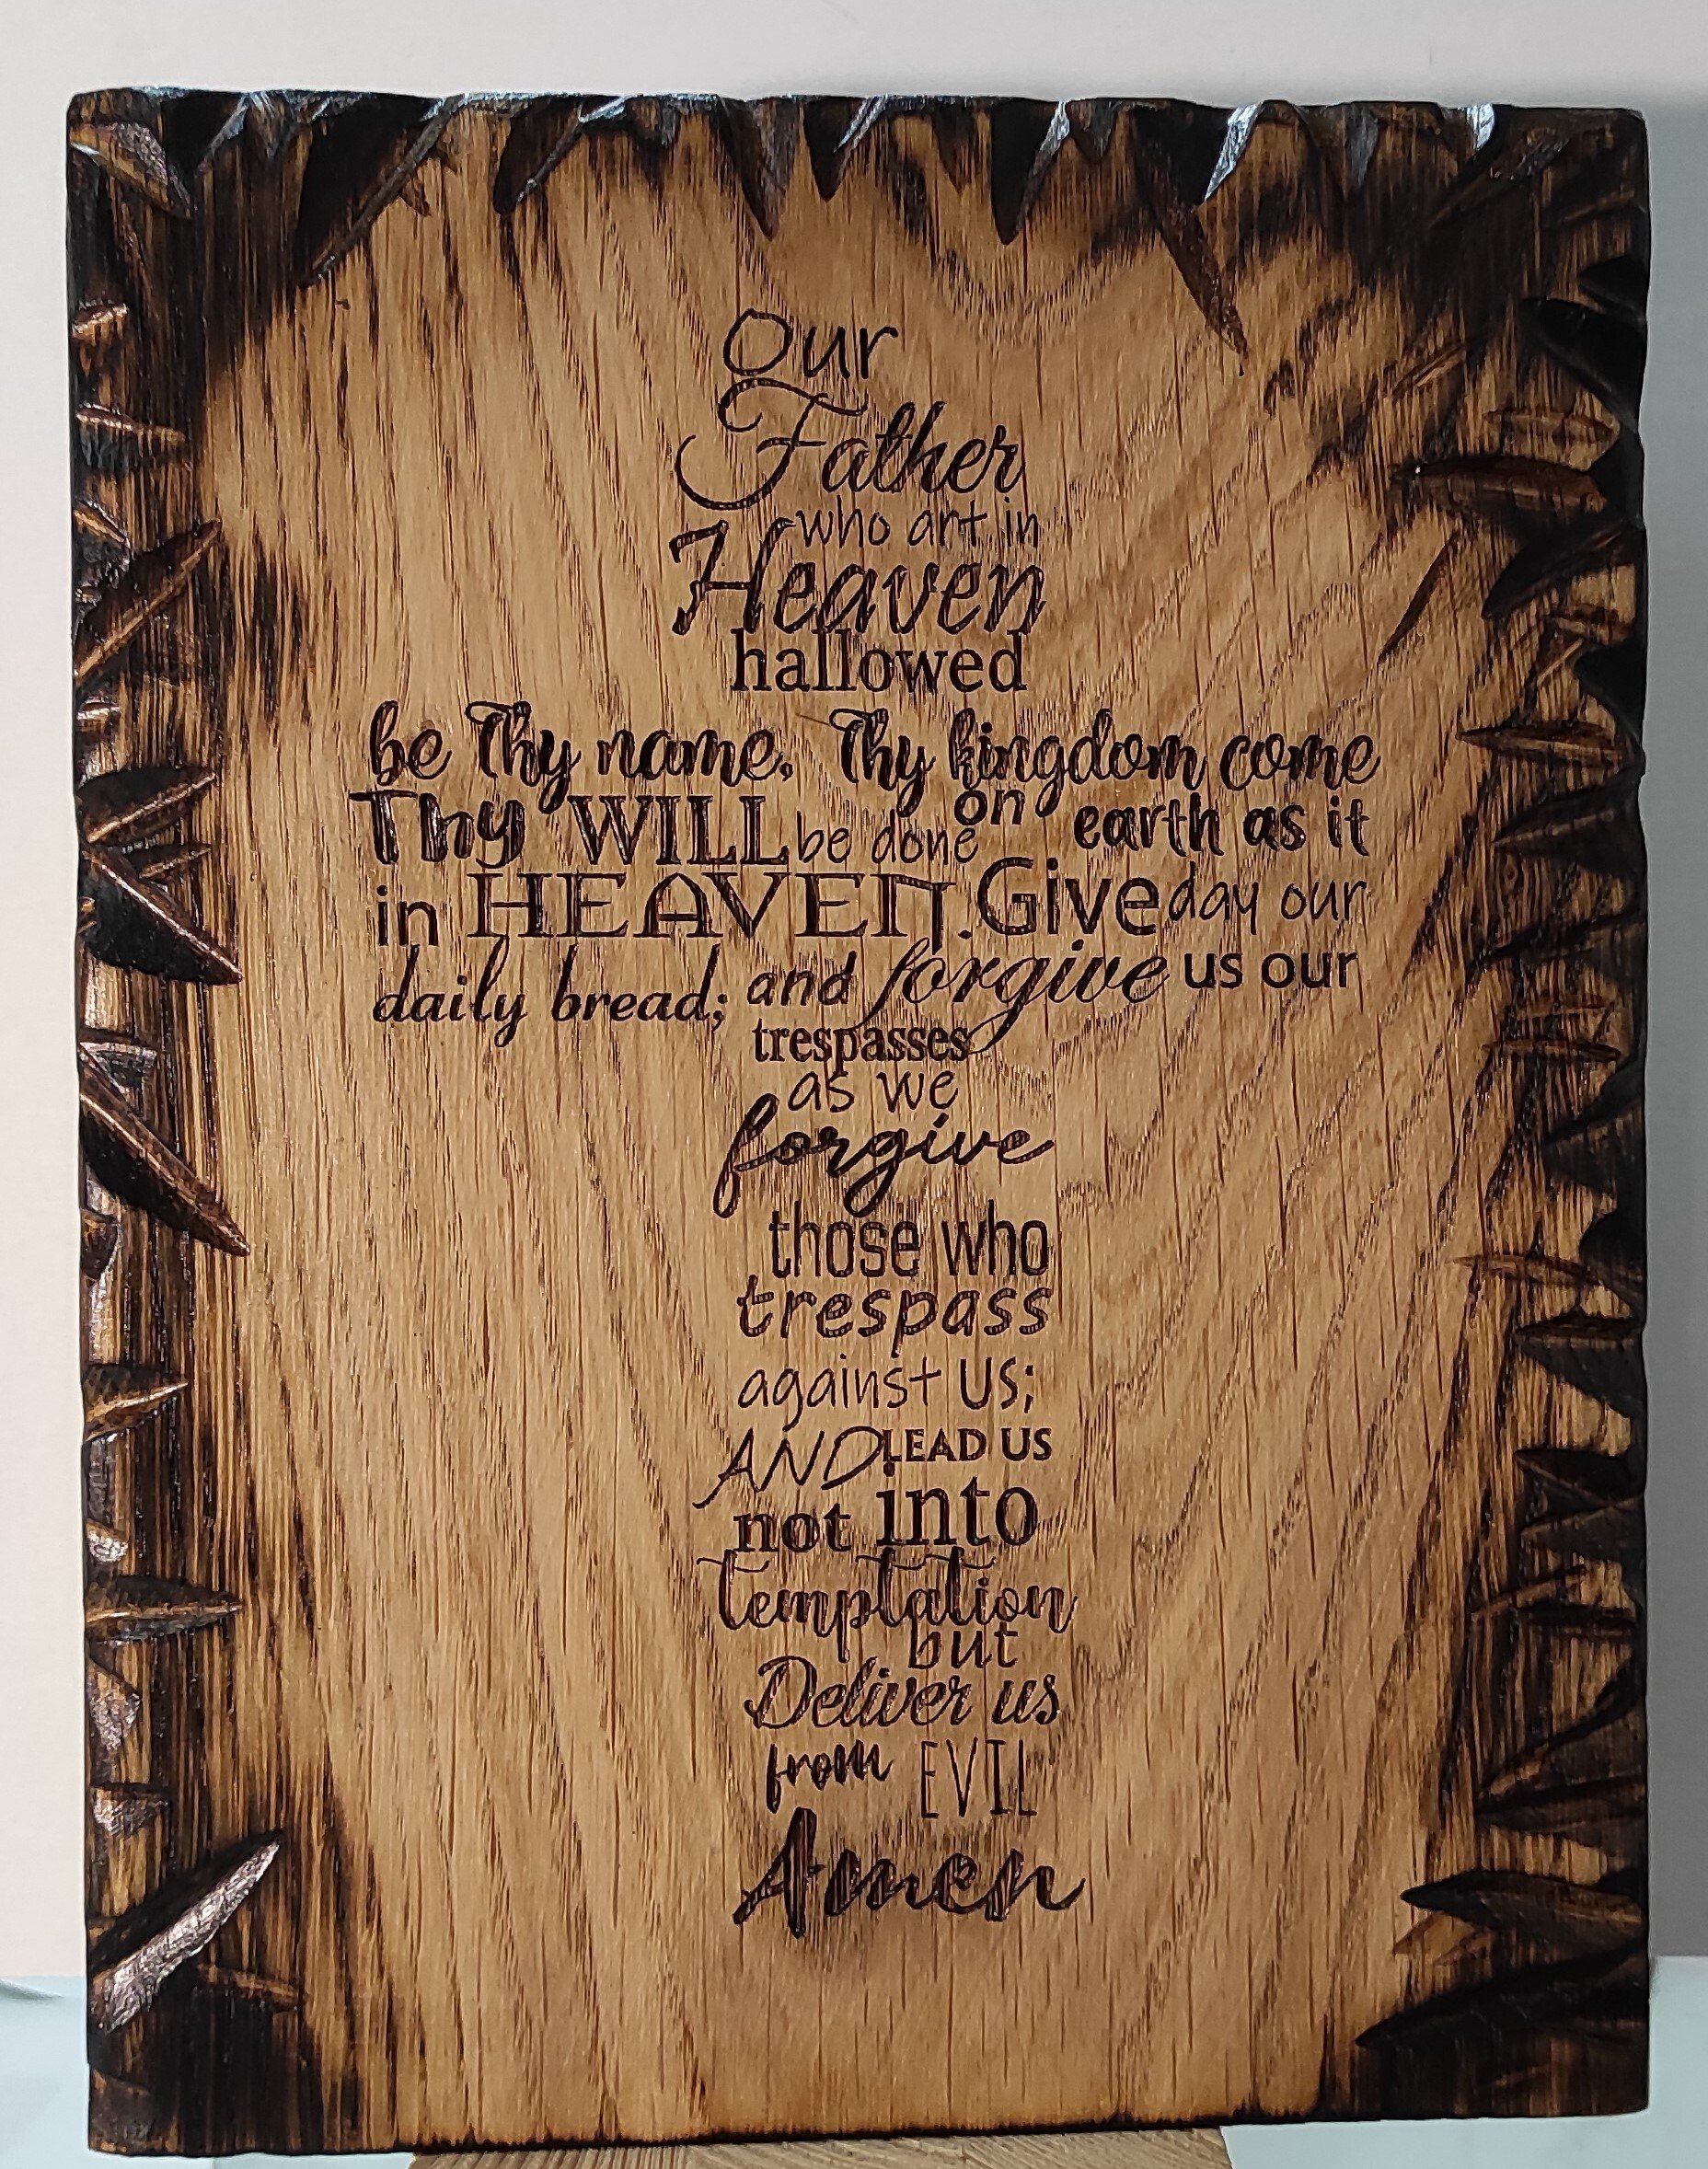 our
Father
who art in
Heaven
hallowed
be Thy name. Thy kingdom come
Thy WILL be done on earth as it
in HEAVEN. Give day our
daily bread; and forgive us our
trespasses
as we
forgive
those who
trespass
against US;
AND LEAD US
not into
temptation
but
Deliver us
from EVIL
Amen